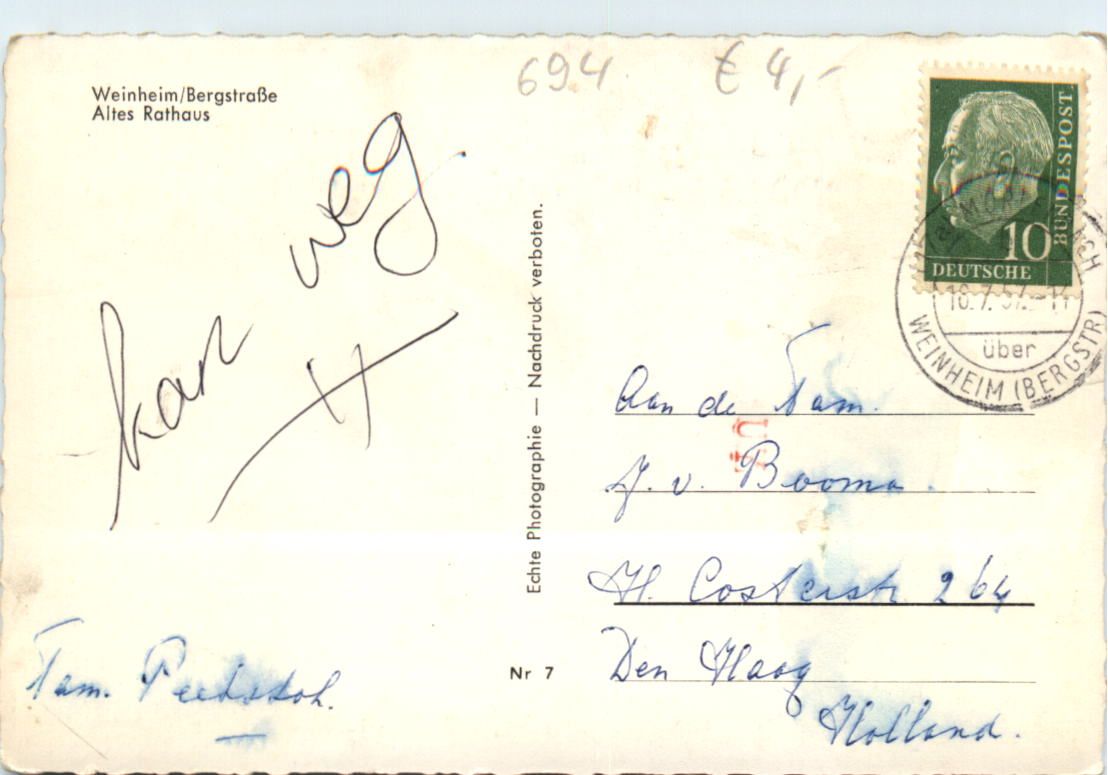 Weinheim/Bergstraße
Altes Rathaus
694 € 4,-
kan weg
Fam.
Echte Photographie — Nachdruck verboten.
Nr 7
BUNDESPOST
10
DEUTSCHE
über
WEINHEIM (BERGSTR)
Aan de Fam.
J. v. Booma.
H. Costerstr 264
Den Haag
Holland.